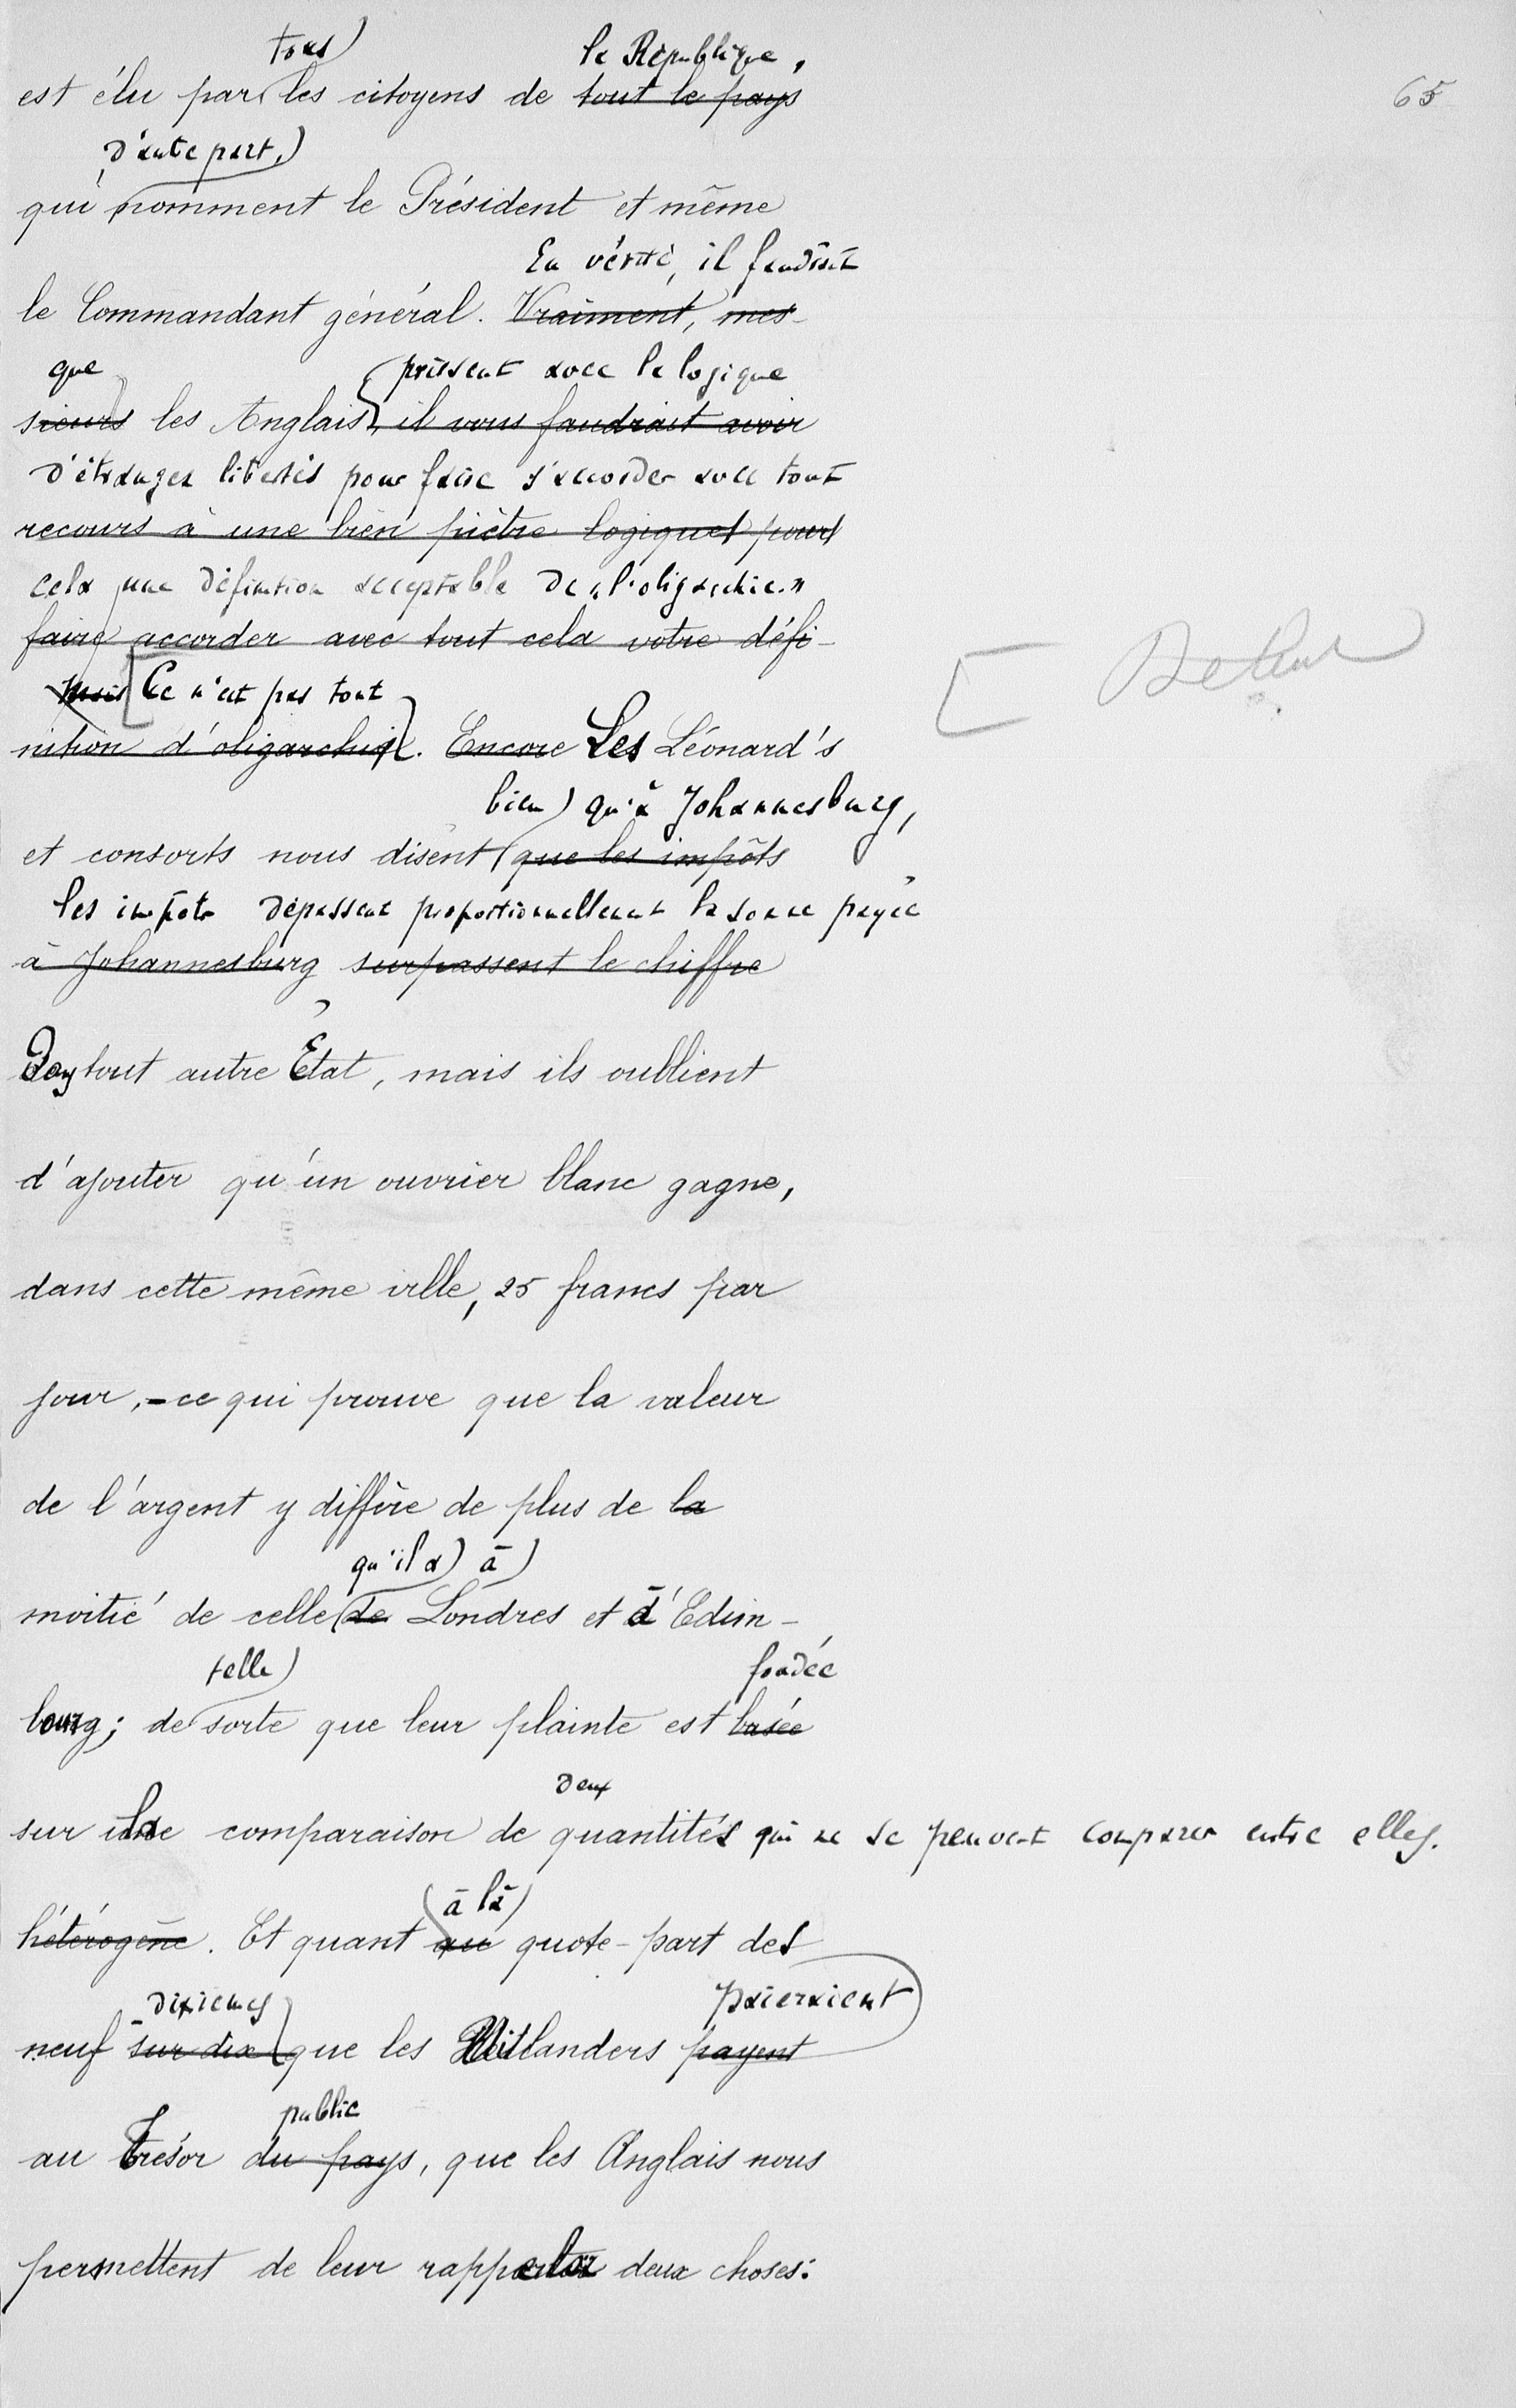 tous) la République,
est élu par les citoyens de tout le pays
65
d'autre part,)
qui nomment le Président et même
En vérité, il faudrait
le Commandant général. Vraiment, mes-
que prissent avec la logique
sieurs les Anglais, il vous faudrait avoir
d'étranges libertés pour faire s'accorder avec tout
recours à une bien piètre logique pour
cela une définition acceptable de "l'oligarchie."
faire accorder avec tout cela votre défi-
Mais [Ce n'est pas tout
nition d'oligarchie. Encore Les Léonard's
bien) qu'à Johannesburg,
et consorts nous disent que les impôts
les impôts dépassent proportionnellement la somme payée
à Johannesburg surpassent le chiffre
tout autre État, mais ils oublient
d'ajouter qu'un ouvrier blanc gagne,
dans cette même ville, 25 francs par
jour, - ce qui prouve que la valeur
de l'argent y diffère de plus de la
qu'il a) à)
moitié de celle de Londres et à Edim-
telle) fondée
bourg; de sorte que leur plainte est basée
deux
sur la comparaison de quantités qui ne se peuvent comparer entre elles.
(à la)
hétérogène. Et quant au quote-part des
dixièmes paieraient
neuf sur dix que les Uitlanders payent
public
au Trésor du pays, que les Anglais nous
permettent de leur rappeler deux choses: